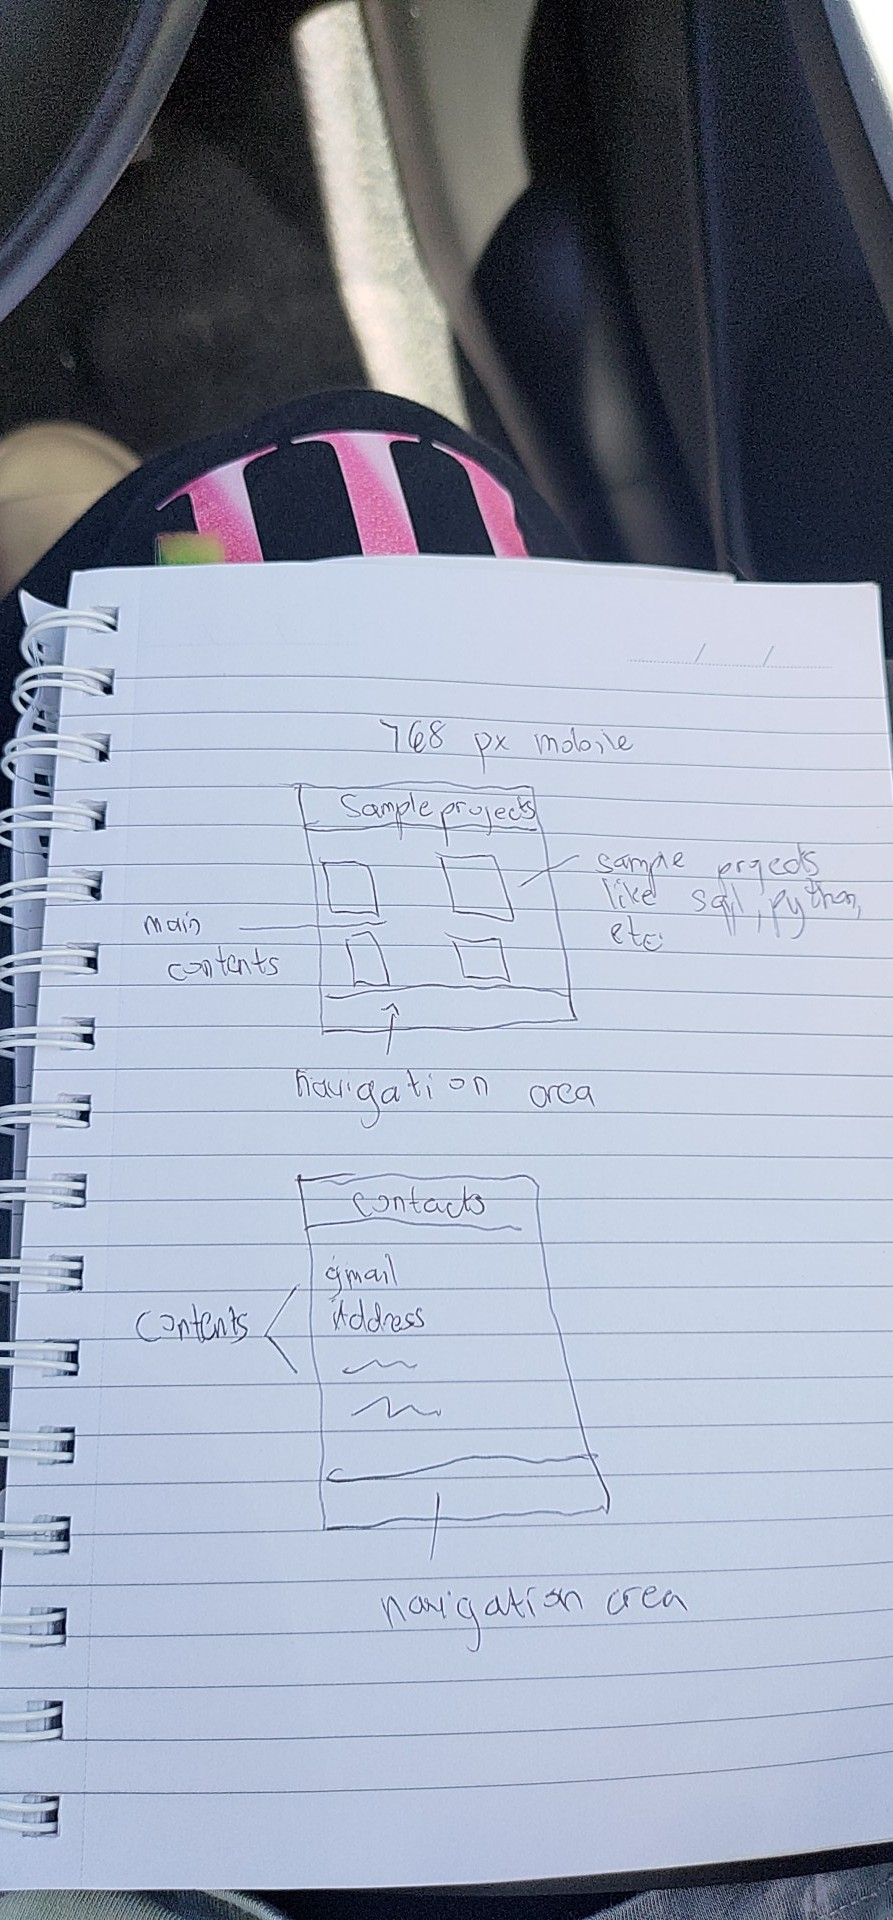 768 px mobile
Sample projects
sample projects
like sql, python,
etc.
main
contents
navigation area
Contacts
gmail
Address
Contents
navigation area